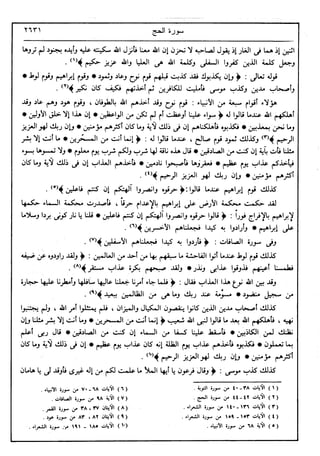 سورة الحج
٢٦٣١
اثنين إذ هما فى الغار إذ يقول لصاحبه لا تحزن إن الله معنا فأنزل الله سكينته عليه وأيده بجنود لم تروها
وجعل كلمة الذين كفروا السفلى وكلمة الله هى العليا والله عزيز حكيم ﴾(١) .
قوله تعالى : ﴿ وإن يكذبوك فقد كذبت قبلهم قوم نوح وعاد وثمود * وقوم إبراهيم وقوم لوط *
وأصحاب مدين وكذب موسى فأمليت للكافرين ثم أخذتهم فكيف كان نكير ﴾(٢) .
هؤلاء أقوام سبعة من الأنبياء : قوم نوح وقد أخذهم الله بالطوفان ، وقوم هود وهم عاد وقد
أهلكهم الله عندما قالوا له ﴿ سواء علينا أوعظت أم لم تكن من الواعظين * إن هذا إلا خلق الأولين *
وما نحن بمعذبين * فكذبوه فأهلكناهم إن فى ذلك لآية وما كان أكثرهم مؤمنين * وإن ربك لهو العزيز
الرحيم ﴾(٣) وكذلك ثمود قوم صالح ، عندما قالوا له : ﴿ إنما أنت من المسحرين * ما أنت إلا بشر
مثلنا فأت بآية إن كنت من الصادقين * قال هذه ناقة لها شرب ولكم شرب يوم معلوم * ولا تمسوها بسوء
فيأخذكم عذاب يوم عظيم * فعقروها فأصبحوا نادمين * فأخذهم العذاب إن فى ذلك لآية وما كان
أكثرهم مؤمنين * وإن ربك لهو العزيز الرحيم ﴾(٤) .
كذلك قوم إبراهيم عندما قالوا : ﴿ حرقوه وانصروا آلهتكم إن كنتم فاعلين ﴾(٥) .
لقد حكمت محكمة الأرض على إبراهيم بالإعدام حرقاً ، فأصدرت محكمة السماء حكمها
لإبراهيم بالإفراج فوراً : ﴿ قالوا حرقوه وانصروا آلهتكم إن كنتم فاعلين * قلنا يا نار كونى برداً وسلاماً
على إبراهيم * وأرادوا به كيدا فجعلناهم الأخسرين ﴾(٦) .
وفى سورة الصافات : ﴿ فأرادوا به كيدا فجعلناهم الأسفلين ﴾(٧) .
كذلك قوم لوط عندما أتوا الفاحشة ما سبقهم بها من أحد من العالمين : ﴿ ولقد راودوه عن ضيفه
فطمسنا أعينهم فذوقوا عذابى ونذر * ولقد صبحهم بكرة عذاب مستقر ﴾(٨) .
وقد بين الله نوع هذا العذاب فقال : ﴿ فلما جاء أمرنا جعلنا عاليها سافلها وأمطرنا عليها حجارة
من سجيل منضود * مسومة عند ربك وما هى من الظالمين ببعيد ﴾(٩) .
كذلك أصحاب مدين الذين كانوا ينقصون المكيال والميزان ، فلم يمتثلوا أمر الله ، ولم يجتنبوا
نهيه ، فأهلكهم الله بعد ما قالوا لنبى الله شعيب ﴿ إنما أنت من المسحرين * وما أنت إلا بشر مثلنا وإن
نظنك لمن الكاذبين * فأسقط علينا كسفا من السماء إن كنت من الصادقين * قال ربى أعلم
بما تعملون * فكذبوه فأخذهم عذاب يوم الظلة إنه كان عذاب يوم عظيم * إن فى ذلك لآية وما كان
أكثرهم مؤمنين * وإن ربك لهو العزيز الرحيم ﴾(١٠) .
كذلك كذب موسى : ﴿ وقال فرعون يا أيها الملأ ما علمت لكم من إله غيرى فأوقد لى يا هامان
(١) الآيات ٣٨ - ٤٠ من سورة التوبة .
(٢) الآيات ٤٢ - ٤٤ من سورة الحج .
(٣) الآيات ١٣٦ - ١٤٠ من سورة الشعراء .
(٤) الآيات ١٥٣ - ١٥٩ من سورة الشعراء .
(٥) الآية ٦٨ من سورة الأنبياء .
(٦) الآيات ٦٨ - ٧٠ من سورة الأنبياء .
(٧) الآية ٩٨ من سورة الصافات .
(٨) الآيتان ٣٧ - ٣٨ من سورة القمر .
(٩) الآيتان ٨٢ - ٨٣ من سورة هود .
(١٠) الآيات ١٨٥ - ١٩١ من سورة الشعراء .